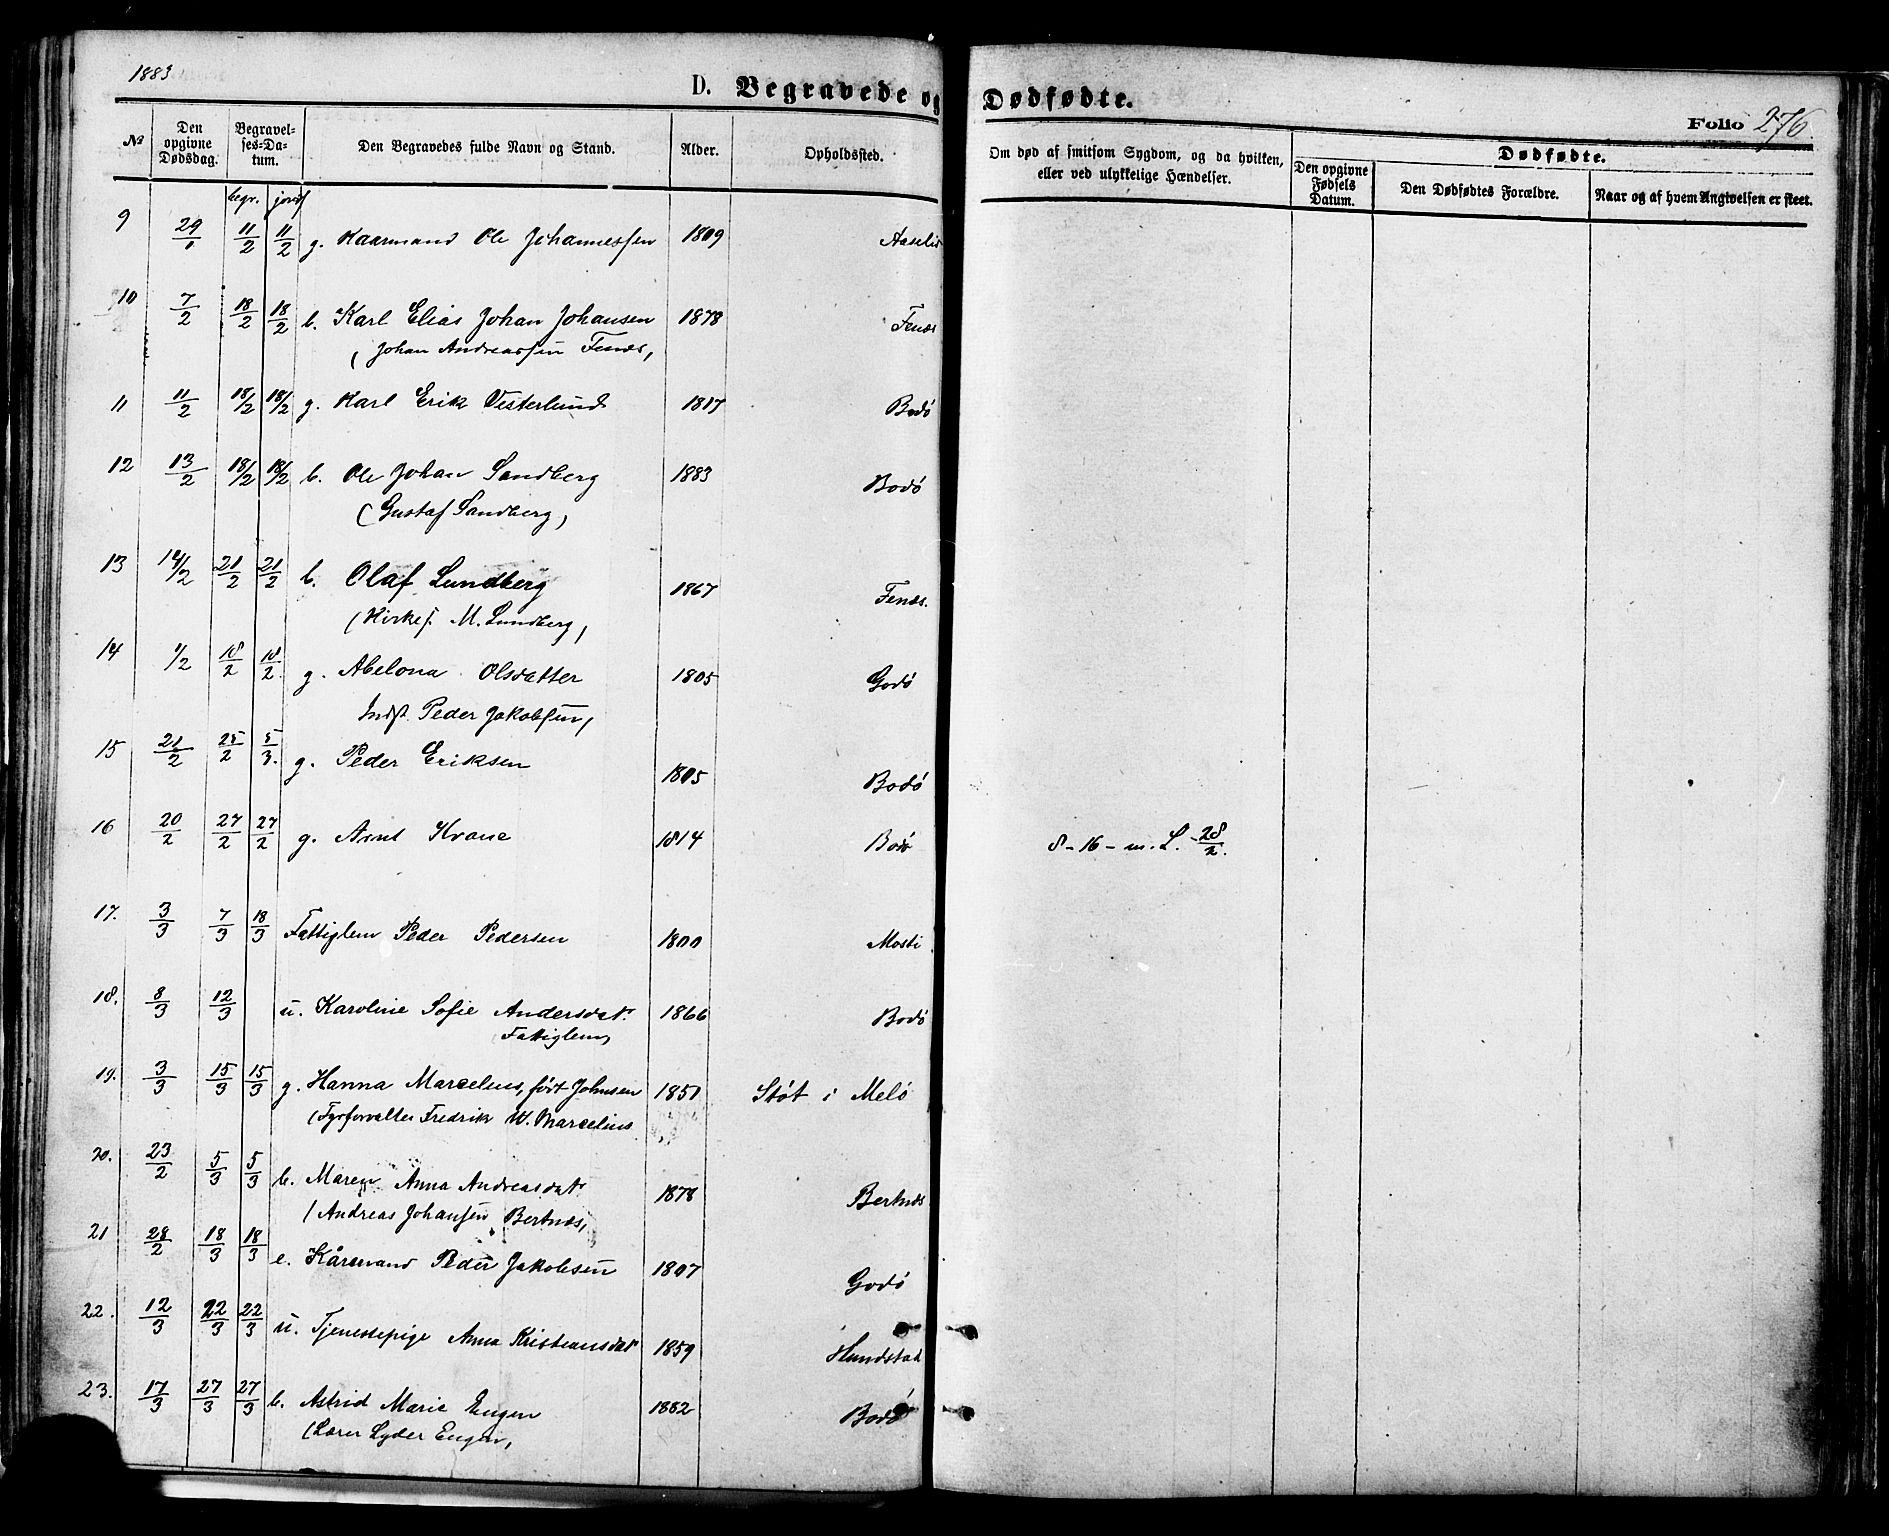 1883
D. Begravede og Dødfødte.
Folio 276.
№ Den opgivne Dødsdag. Begravelses-Datum. Den Begravedes fulde Navn og Stand. Alder. Opholdssted. Om død af smitsom Sygdom, og da hvilken, eller ved ulykkelige Hændelser. Dødfødte. Den opgivne Fødsels Datum. Den Dødfødtes Forældre. Naar og af hvem Angivelsen er skeet.
begr. jord
9 29/1 11/2 11/2 g. Kaarmand Ole Johannessen 1809 Aaselid
10 7/2 18/2 18/2 b. Karl Elias Johan Johansen 1878 Fenæs
(Johan Andreassen Fenæs,
11 11/2 18/2 18/2 g. Karl Erik Vesterlund 1817 Bodø
12 13/2 18/2 18/2 b. Ole Johan Sandberg 1883 Bodø
(Gustaf Sandberg,
13 14/2 21/2 21/2 b. Olaf Lundberg 1867 Fenæs.
(Kirkes. M. Lundberg,
14 1/2 18/2 18/2. g. Abelona Olsdatter 1805 Godø
Indst. Peder Jakobsen,
15 21/2 25/2 5/3. g. Peder Eriksen 1805 Bodø
16 20/2 27/2 27/2 g. Arnt Krane 1814 Bodø 8-16- m. L. 28/2.
17. 3/3 7/3 18/3 Fattiglem Peder Pedersen 1800 Mosti
18. 8/3 12/3 u. Karoline Sofie Andersdat. 1866 Bodø
Fattiglem,
19. 3/3 15/3 15/3 g. Hanna Marcelius, født Johnsen 1851 Støt i Melø
(Fyrforvalter Fredrik W. Marcelius
20. 23/2 5/3 5/3 b. Maren Anna Andreasdat. 1878 Bertnæs
(Andreas Johansen Bertnæs,
21 28/2 18/3 18/3 e. Kårmand Peder Jakobsen 1807 Godø
22. 12/3 22/3 22/3 u. Tjenestepige Anna Kristiansdat. 1859 Hundstad
23. 17/3 27/3 27/3 b. Astrid Marie Engen 1882 Bodø
(Lærer Lyder Engen,